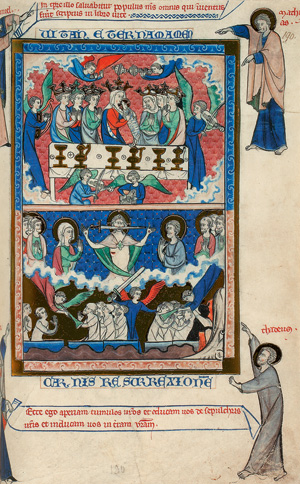 saluabitur populus tuus omnis qui inuentus
fuerit scriptus in libro uite
VITAM ETERNAM AMEN
mathias
CARNIS RESURREXIONE
thadeus
Ecce ego aperiam tumulos uros et educam uos de sepulchris
uris et inducam uos in tram uram